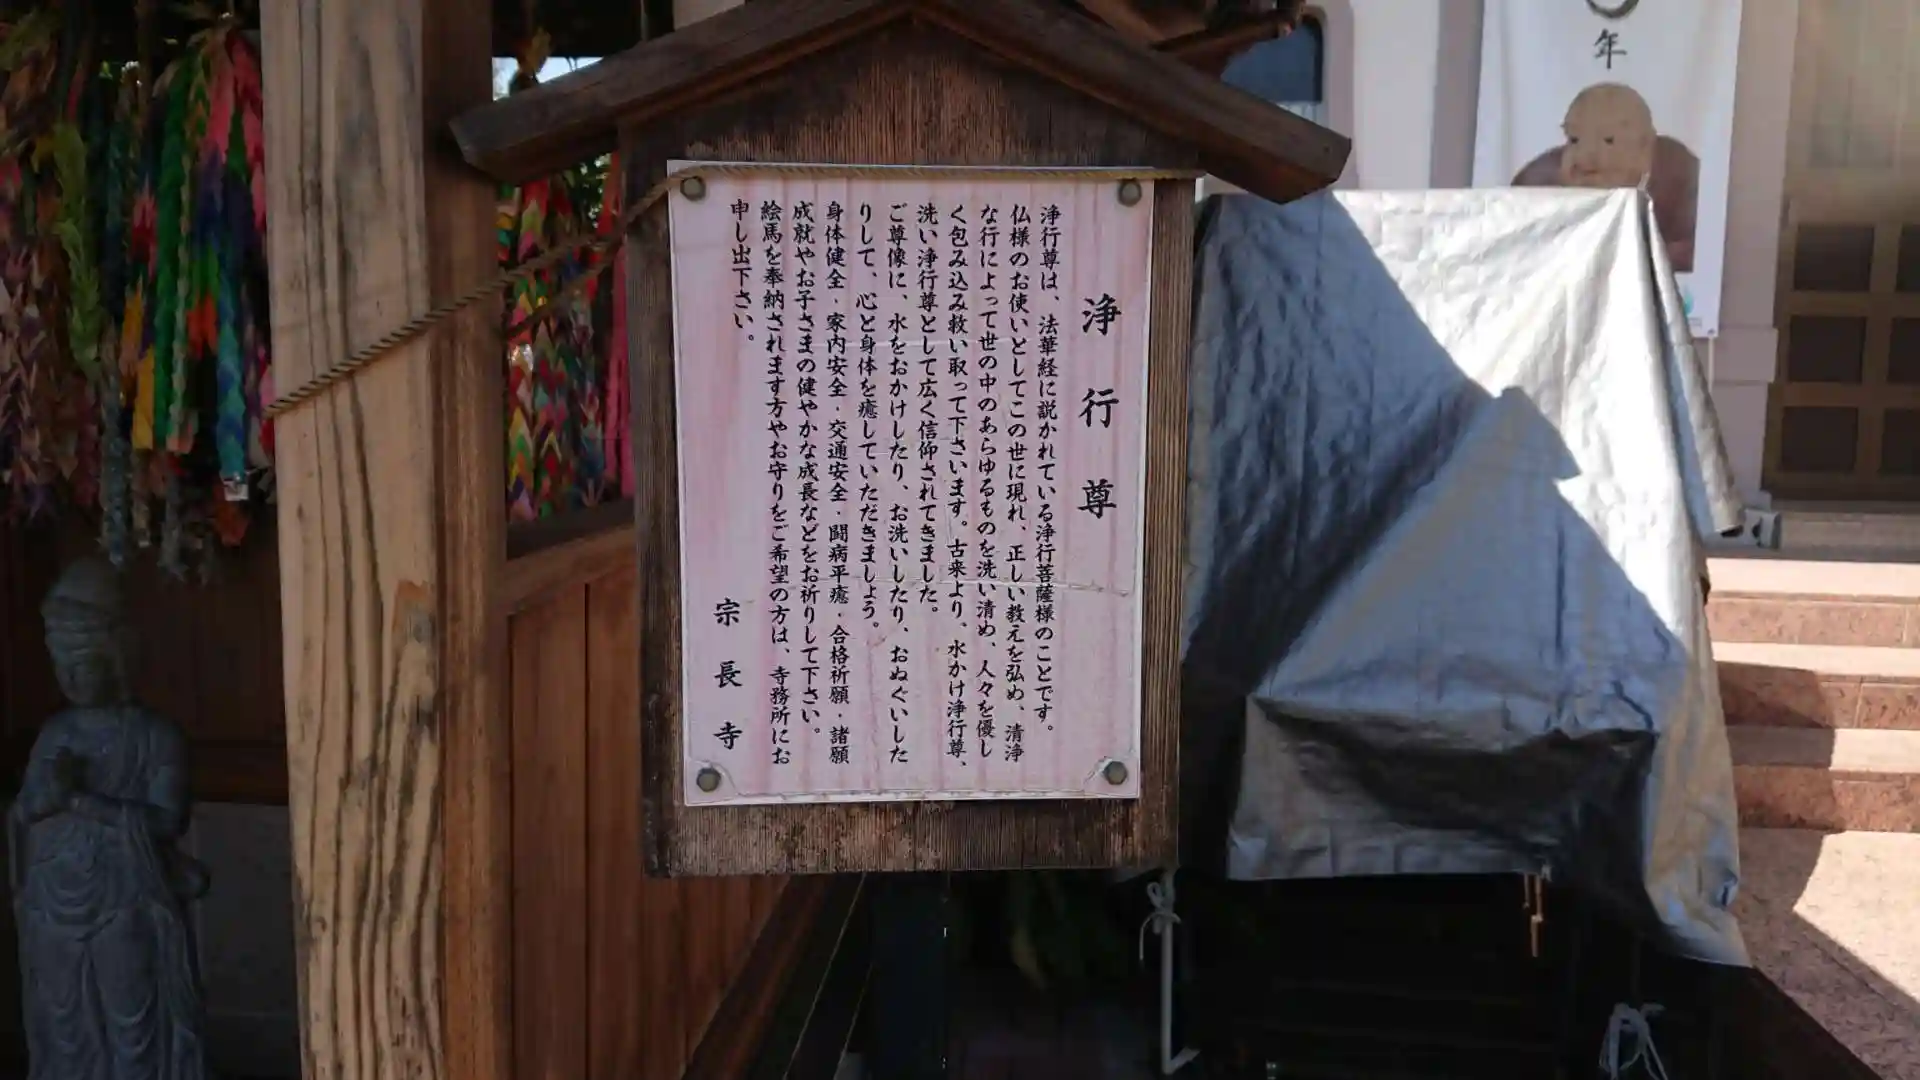 浄行尊
浄行尊は、法華経に説かれている浄行菩薩様のことです。
仏様のお使いとしてこの世に現れ、正しい教えを弘め、清浄
な行によって世の中のあらゆるものを洗い清め、人々を優し
く包み込み救い取って下さいます。古来より、水かけ浄行尊、
洗い浄行尊として広く信仰されてきました。
ご尊像に、水をおかけしたり、お洗いしたり、おぬぐいした
りして、心と身体を癒していただきましょう。
身体健全・家内安全・交通安全・闘病平癒・合格祈願・諸願
成就やお子さまの健やかな成長などをお祈りして下さい。
絵馬を奉納されます方やお守りをご希望の方は、寺務所にお
申し出下さい。
宗長寺
年